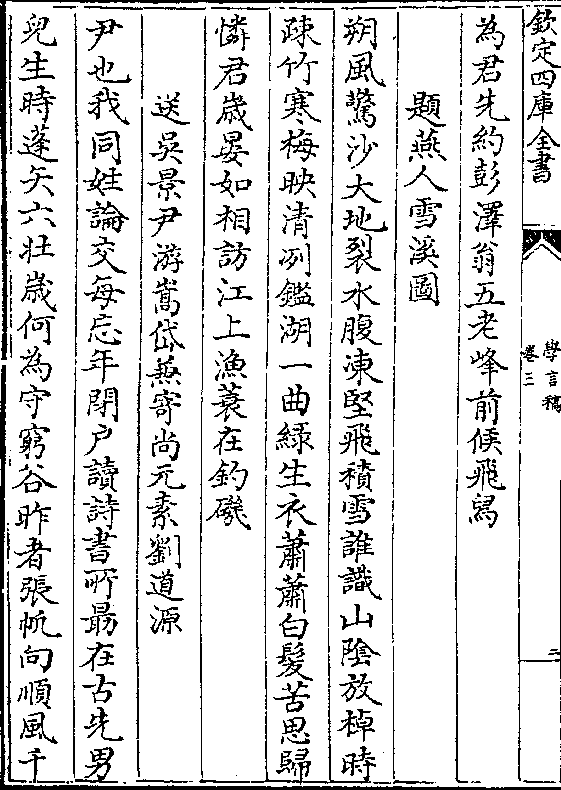 欽定四庫全書
學言稿
卷三
二
為君先約彭澤翁五老峰前候飛舄
題燕人雪溪圖
朔風驚沙大地裂水腹凍堅飛積雪誰識山陰放棹時
疎竹寒梅映清冽鑑湖一曲緑生衣蕭蕭白髮苦思歸
憐君歳晏如相訪江上漁蓑在釣磯
送吳景尹游嵩岱兼寄尚元素劉道源
尹也我同姓論交每忘年閉户讀詩書所朂在古先男
兒生時蓬矢六壯歳何為守窮谷昨者張帆向順風千